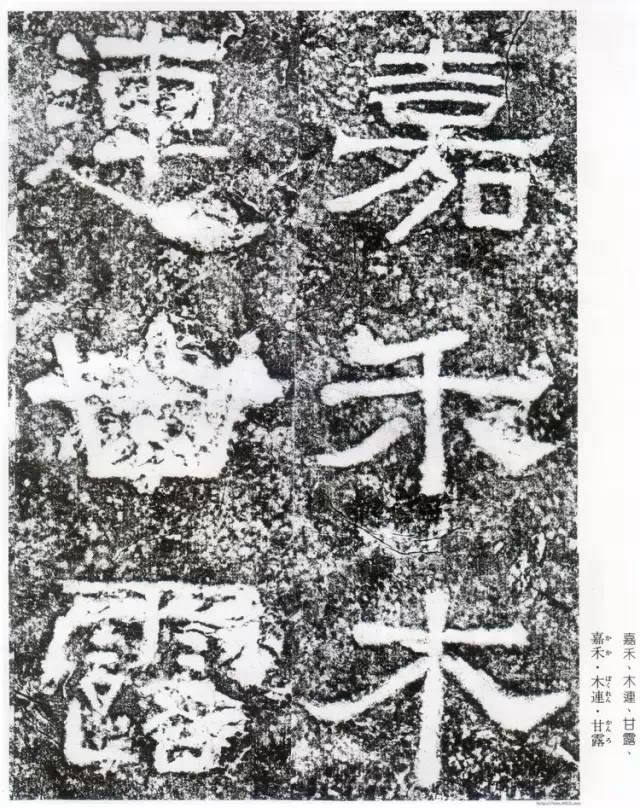 嘉禾木
連甘露
嘉禾、木連、甘露、
嘉禾・木連・甘露
かか ぼくれん かんろ